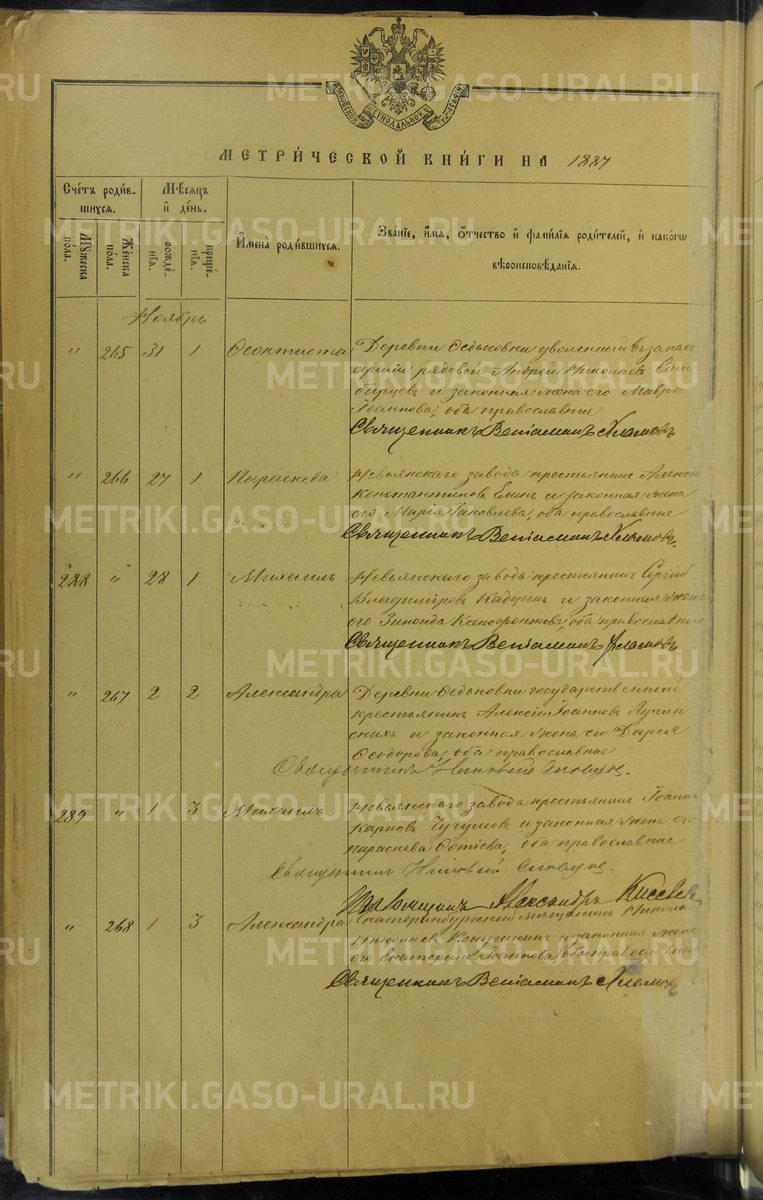 МОСКОВСКОЙ СѴНОДАЛЬНОЙ ТИПОГРАФІИ
МЕТРИ́ЧЕСКОЙ КНИ́ГИ НА 1887
Сче́тъ роди́вшихсѧ.
Мꙋ́жеска пола.
Же́нска по́ла.
Мѣ́сѧцъ и҆ де́нь.
рожде́нїѧ.
креще́нїѧ.
И҆мена̀ роди́вшихсѧ.
Зва́нїе, и҆́мѧ, ѻ҆́тчество и҆ фами́лїѧ роди́телей, и҆ како́гѡ вѣроисповѣ́данїѧ.
Ноябрь
" 265 31 1 Феоктиста Деревни Федьковки уволенный въ запас
армiи рядовой Андрей Николаевъ
и законная жена его Мавра
Iоаннова, оба православные
Священникъ Венiаминъ Хламовъ
" 266 27 1 Параскева Невьянскаго завода крестьянинъ Алексѣй
Константиновъ Елинъ и законная жена
его Марiя Iаковлева, оба православные
Священникъ Венiаминъ Хламовъ.
288 " 28 1 Михаилъ Невьянскаго завода крестьянинъ Сергiй
Владимiровъ и законная жена
его Зиноида Ксенофонтова, оба православные
Священникъ Венiаминъ Хламовъ
" 267 2 2 Александра Деревни Федьковки государственный
крестьянинъ Алексiй Iоанновъ Лучинскихъ
и законная жена его Дарья
Феодорова, оба православные
Священникъ
289 " 1 3 Михаилъ Невьянскаго завода крестьянинъ Iоаннъ
Карповъ Чугуновъ и законная жена его
Параскева Фотiева, оба православные
Священникъ
Псаломщикъ Александръ Киселевъ
" 268 1 3 Александра Екатеринбургскiй мѣщанинъ Николай
Николаевъ и законная жена
его Екатерина Iоаннова, оба православные
Священникъ Венiаминъ Хламовъ
METRIKI.GASO-URAL.RU